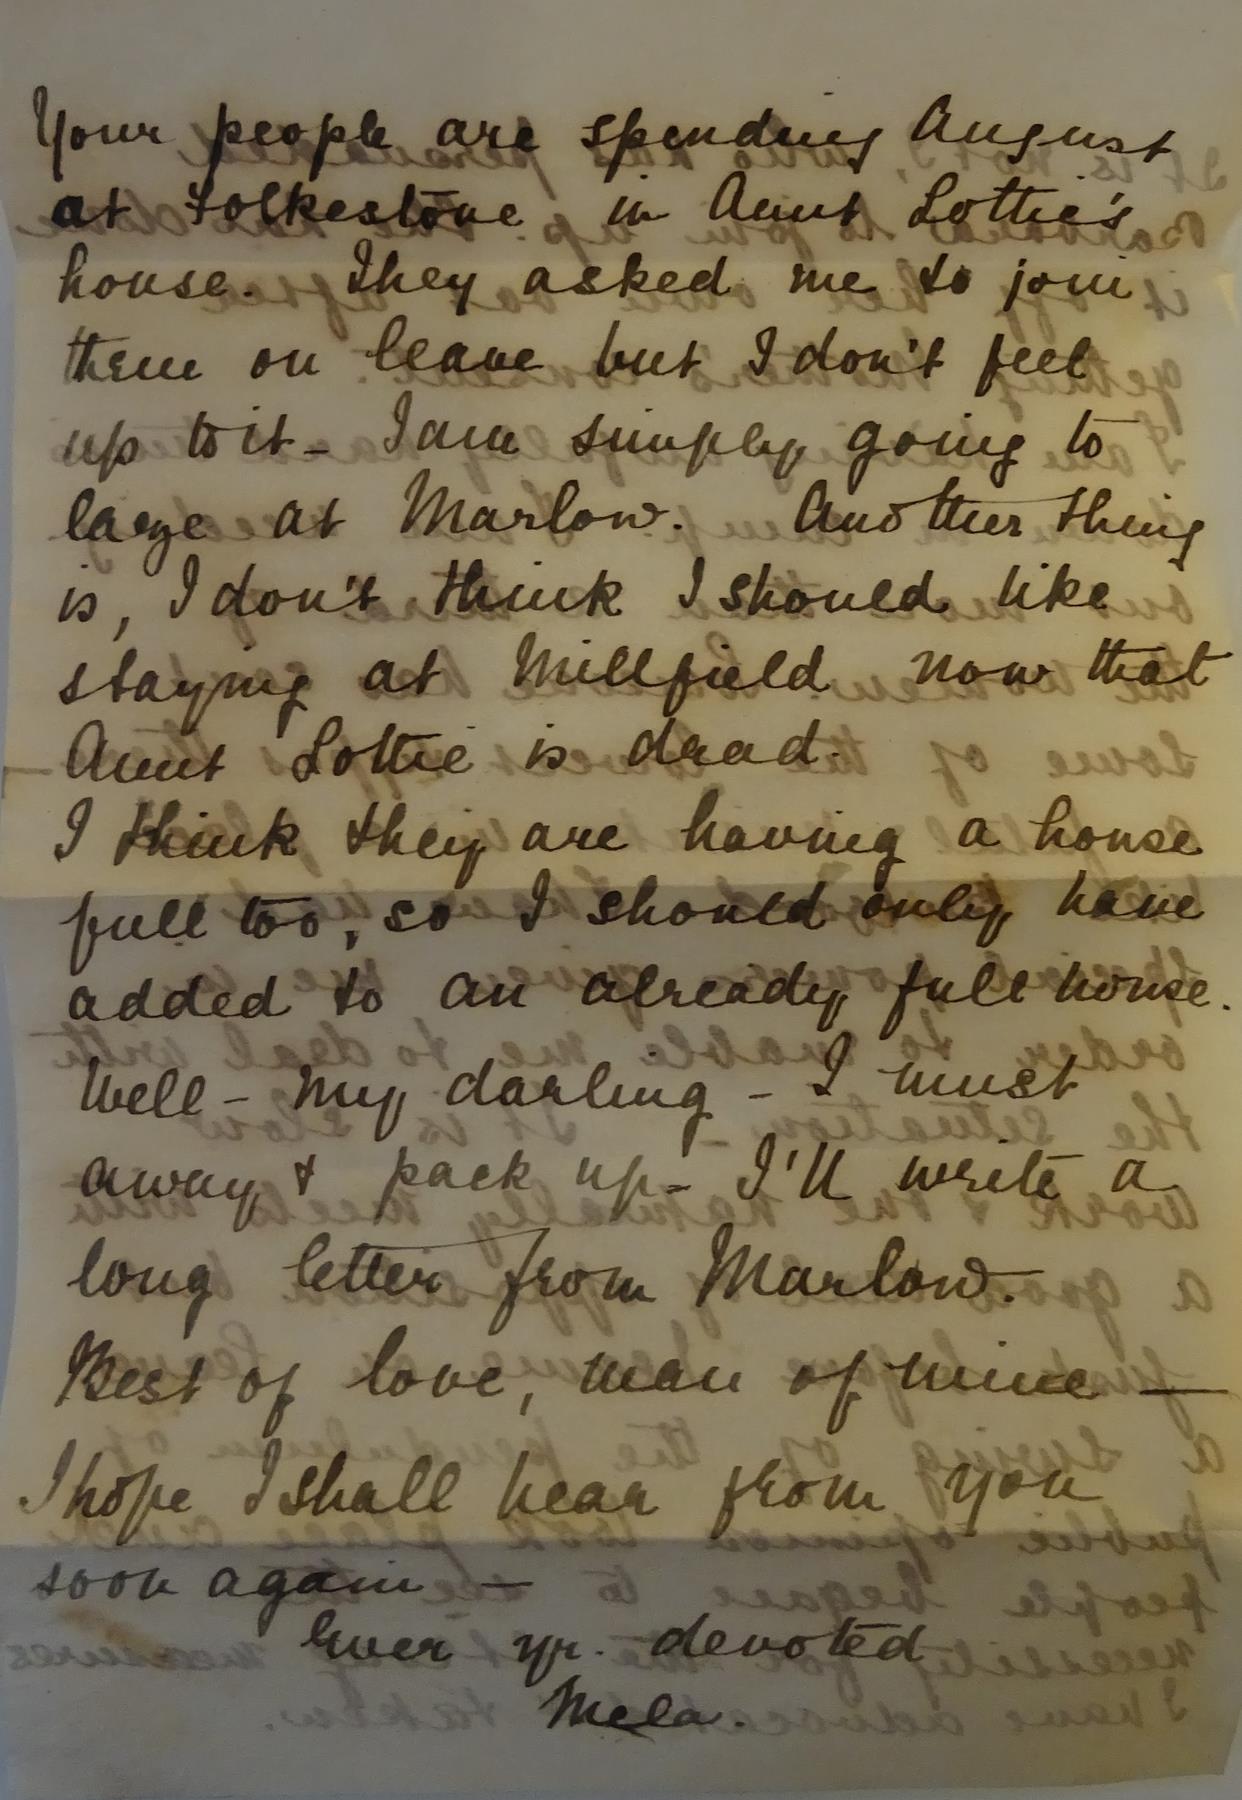 Your people are spending August
at Folkestone in Aunt Lottie's
house. They asked me to join
them on leave but I don't feel
up to it - I am simply going to
laze at Marlow. Another thing
is, I don't think I should like
staying at Millfield now that
Aunt Lottie is dead.
I think they are having a house
full too, so I should only have
added to an already full house.
Well - my darling - I must
away & pack up - I'll write a
long letter from Marlow.
Best of love, man of mine —
I hope I shall hear from you
soon again —
Ever yr. devoted
Mela.